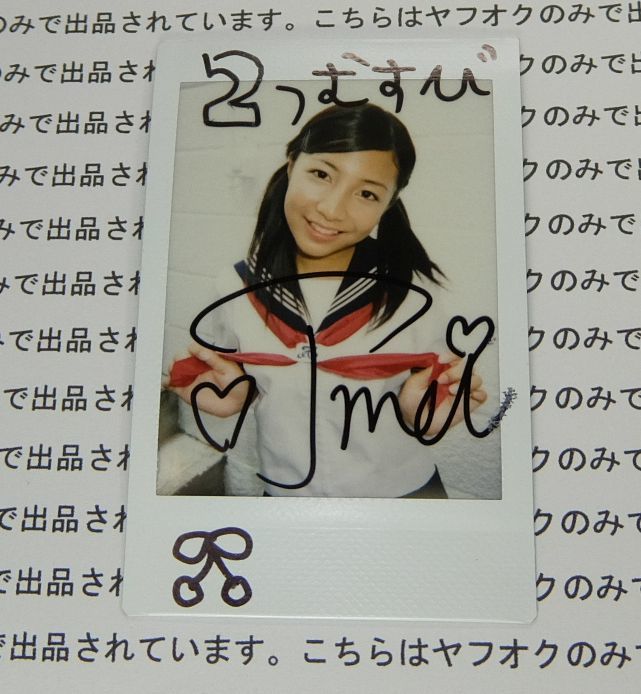 のみで出品されています。こちらはヤフオクのみで出
みで出品され
クのみで出
みで出品され
クのみで出
みで出品され
クのみで出
みで出品され
クのみで
みで出品され
クのみで出
で出品され
クのみで出
で出品され
クのみで
で出品され
クのみで
で出品され
クのみで
で出品され
クのみで
で出品されています。こちらはヤフオクのみで
2つむすび